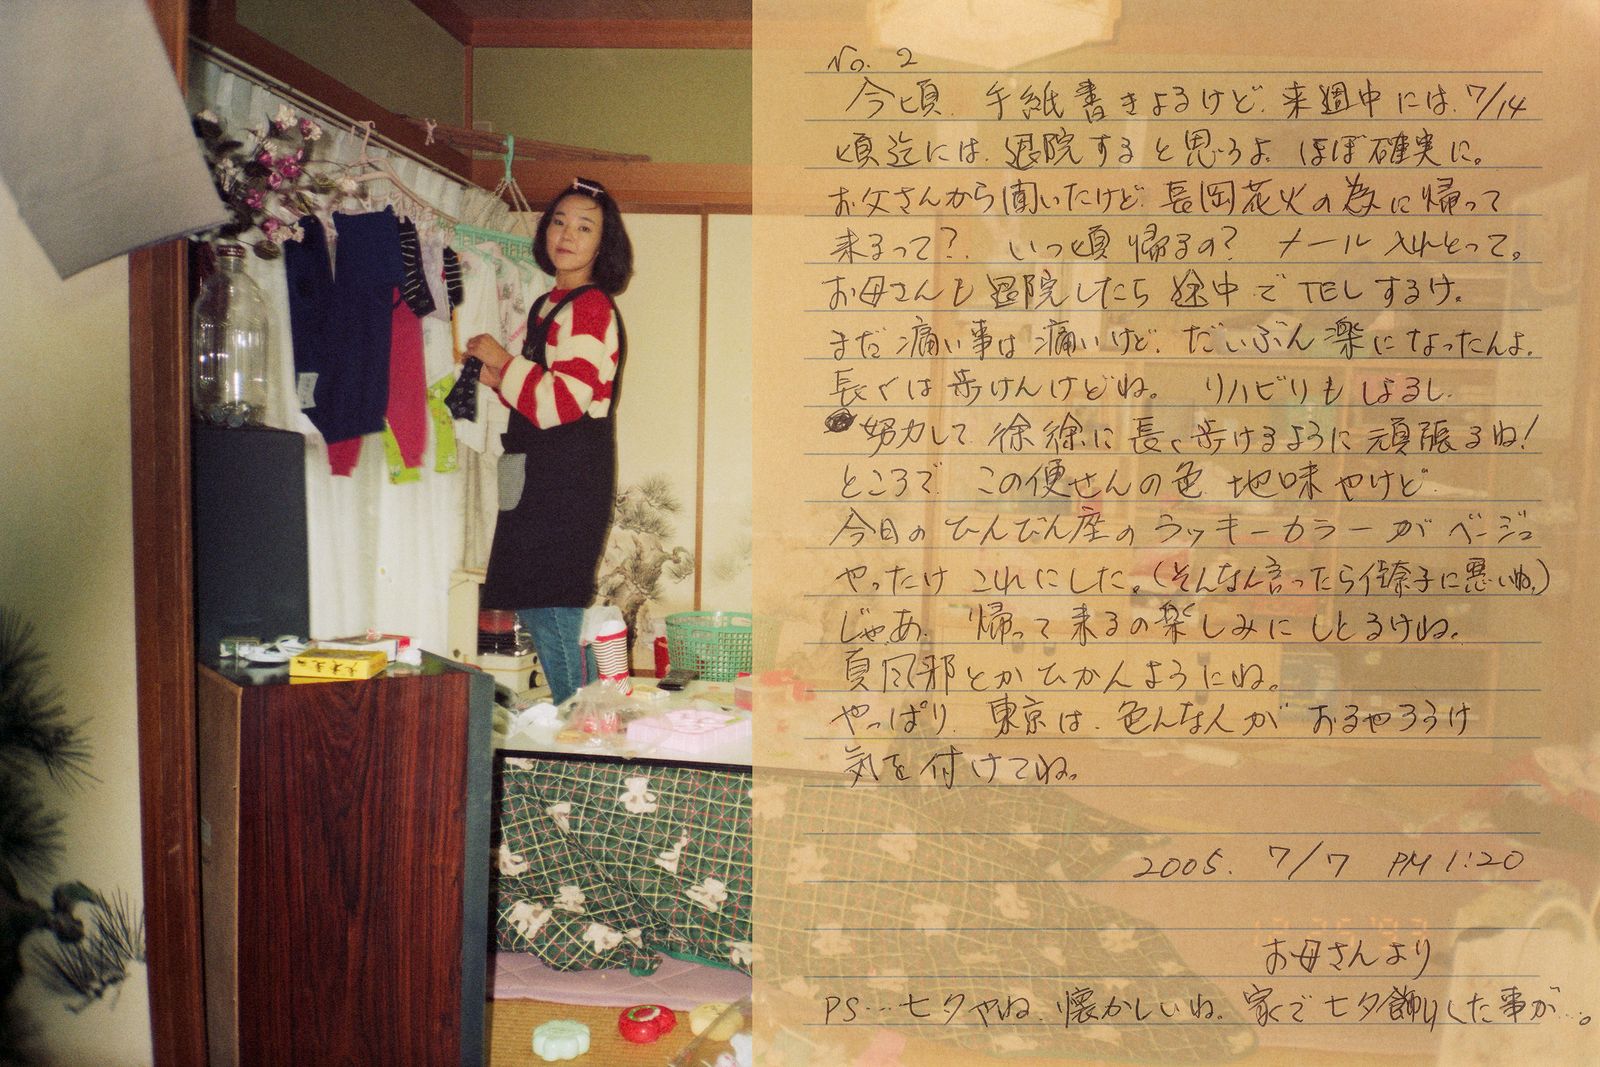 No. 2
今頃、手紙書きよるけど、来週中には、7/14
頃迄には、退院すると思うよ。ほぼ確実に。
お父さんから聞いたけど、長岡花火の為に帰って
来るって? いつ頃帰るの? メール入れとって。
お母さんも退院したら途中でTELするけ。
まだ痛い事は痛いけど、だいぶん楽になったんよ。
長くは歩けんけどね。リハビリもしよるし、
努力して、徐徐に長く歩けるように頑張るね!
ところで、この便せんの色、地味やけど、
今日のてんびん座のラッキーカラーがベージュ
やったけ、これにした。(そんなん言ったら佳奈子に悪いね。)
じゃあ、帰って来るの楽しみにしとるけね。
夏風邪とかひかんようにね。
やっぱり、東京は、色んな人がおるやろうけ
気を付けてね。
2005. 7/7 PM 1:20
お母さんより
PS…七夕やね、懐かしいね。家で七夕飾りした事が…。